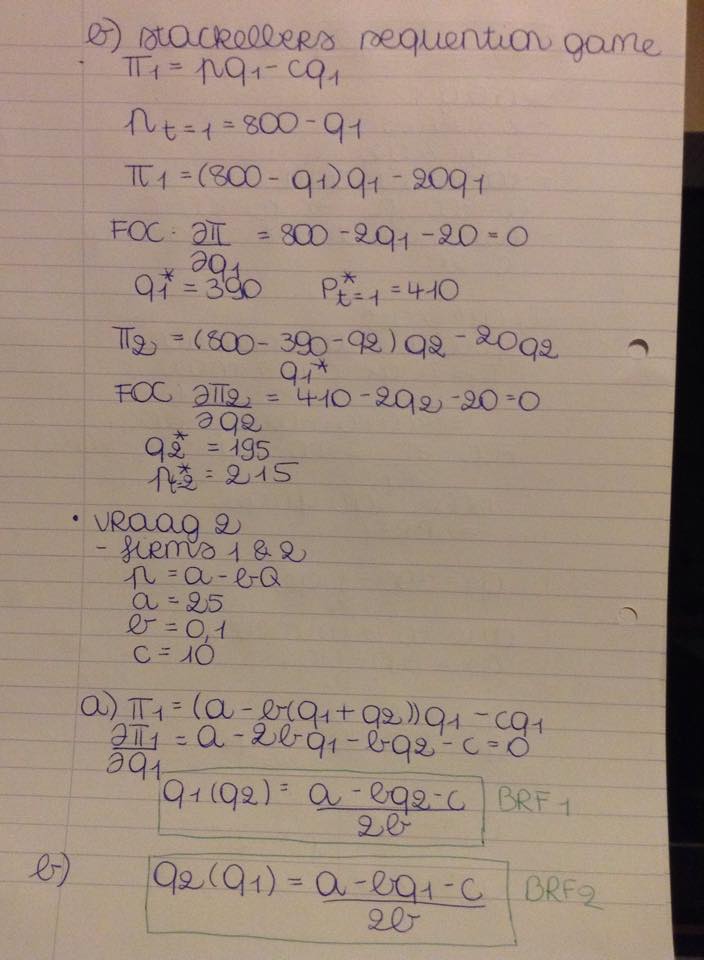 b) stackellers sequention game
π1 = pq1 - cq1
pt=1 = 800 - q1
π1 = (800 - q1)q1 - 20q1
FOC: ∂π/∂q1 = 800 - 2q1 - 20 = 0
q1* = 390 P*t=1 = 410
π2 = (800 - 390 - q2) q2 - 20q2
q1*
FOC ∂π2/∂q2 = 410 - 2q2 - 20 = 0
q2* = 195
p*t=2 = 215
• vraag 2
- firms 1 & 2
p = a - bQ
a = 25
b = 0,1
c = 10
a) π1 = (a - b(q1 + q2))q1 - cq1
∂π1/∂q1 = a - 2bq1 - bq2 - c = 0
q1(q2) = (a - bq2 - c)/2b BRF1
b) q2(q1) = (a - bq1 - c)/2b BRF2